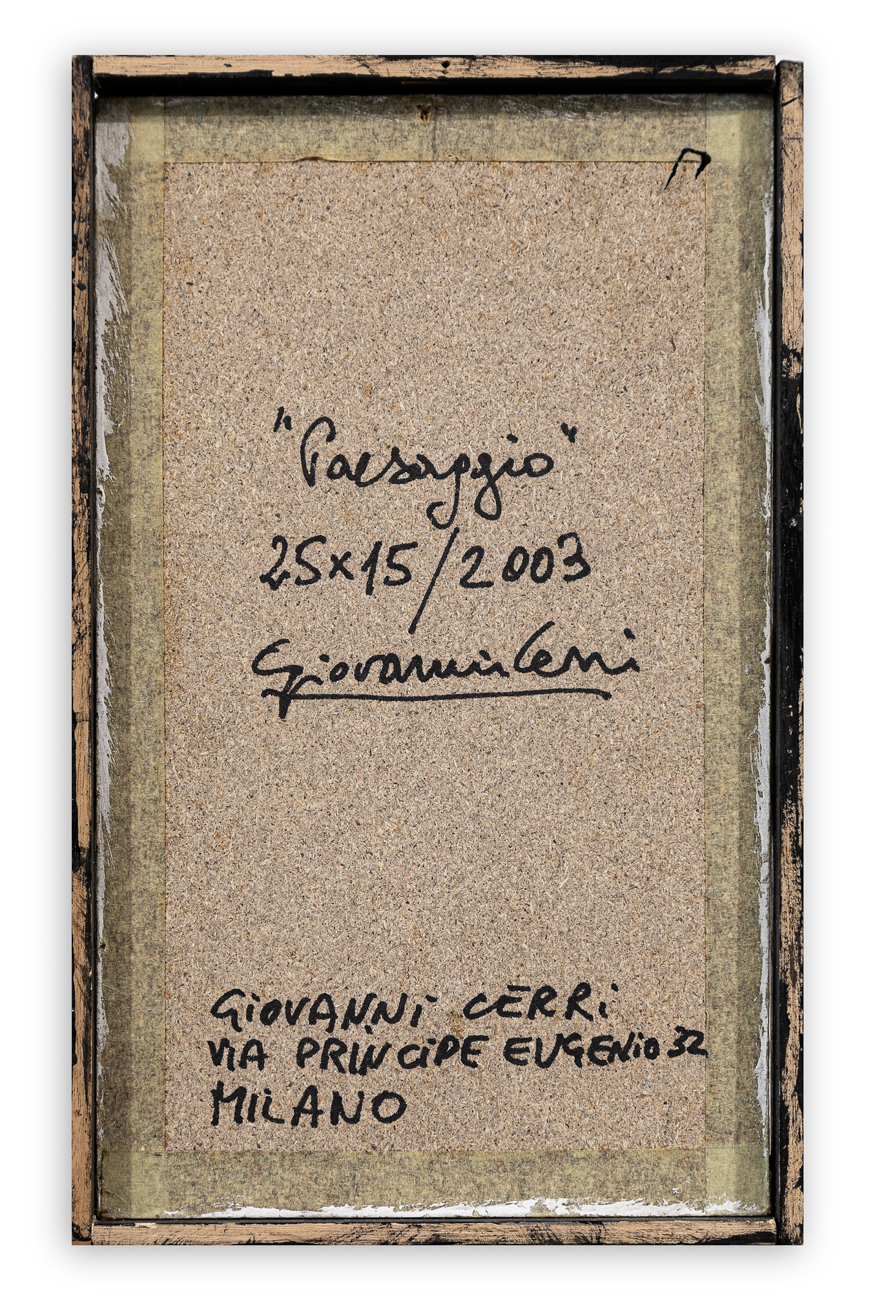 "Paesaggio"
25x15/2003
Giovanni Cerri
GiOVANNi CERRi
ViA PRiNCiPE EUGENiO 32
MiLANO